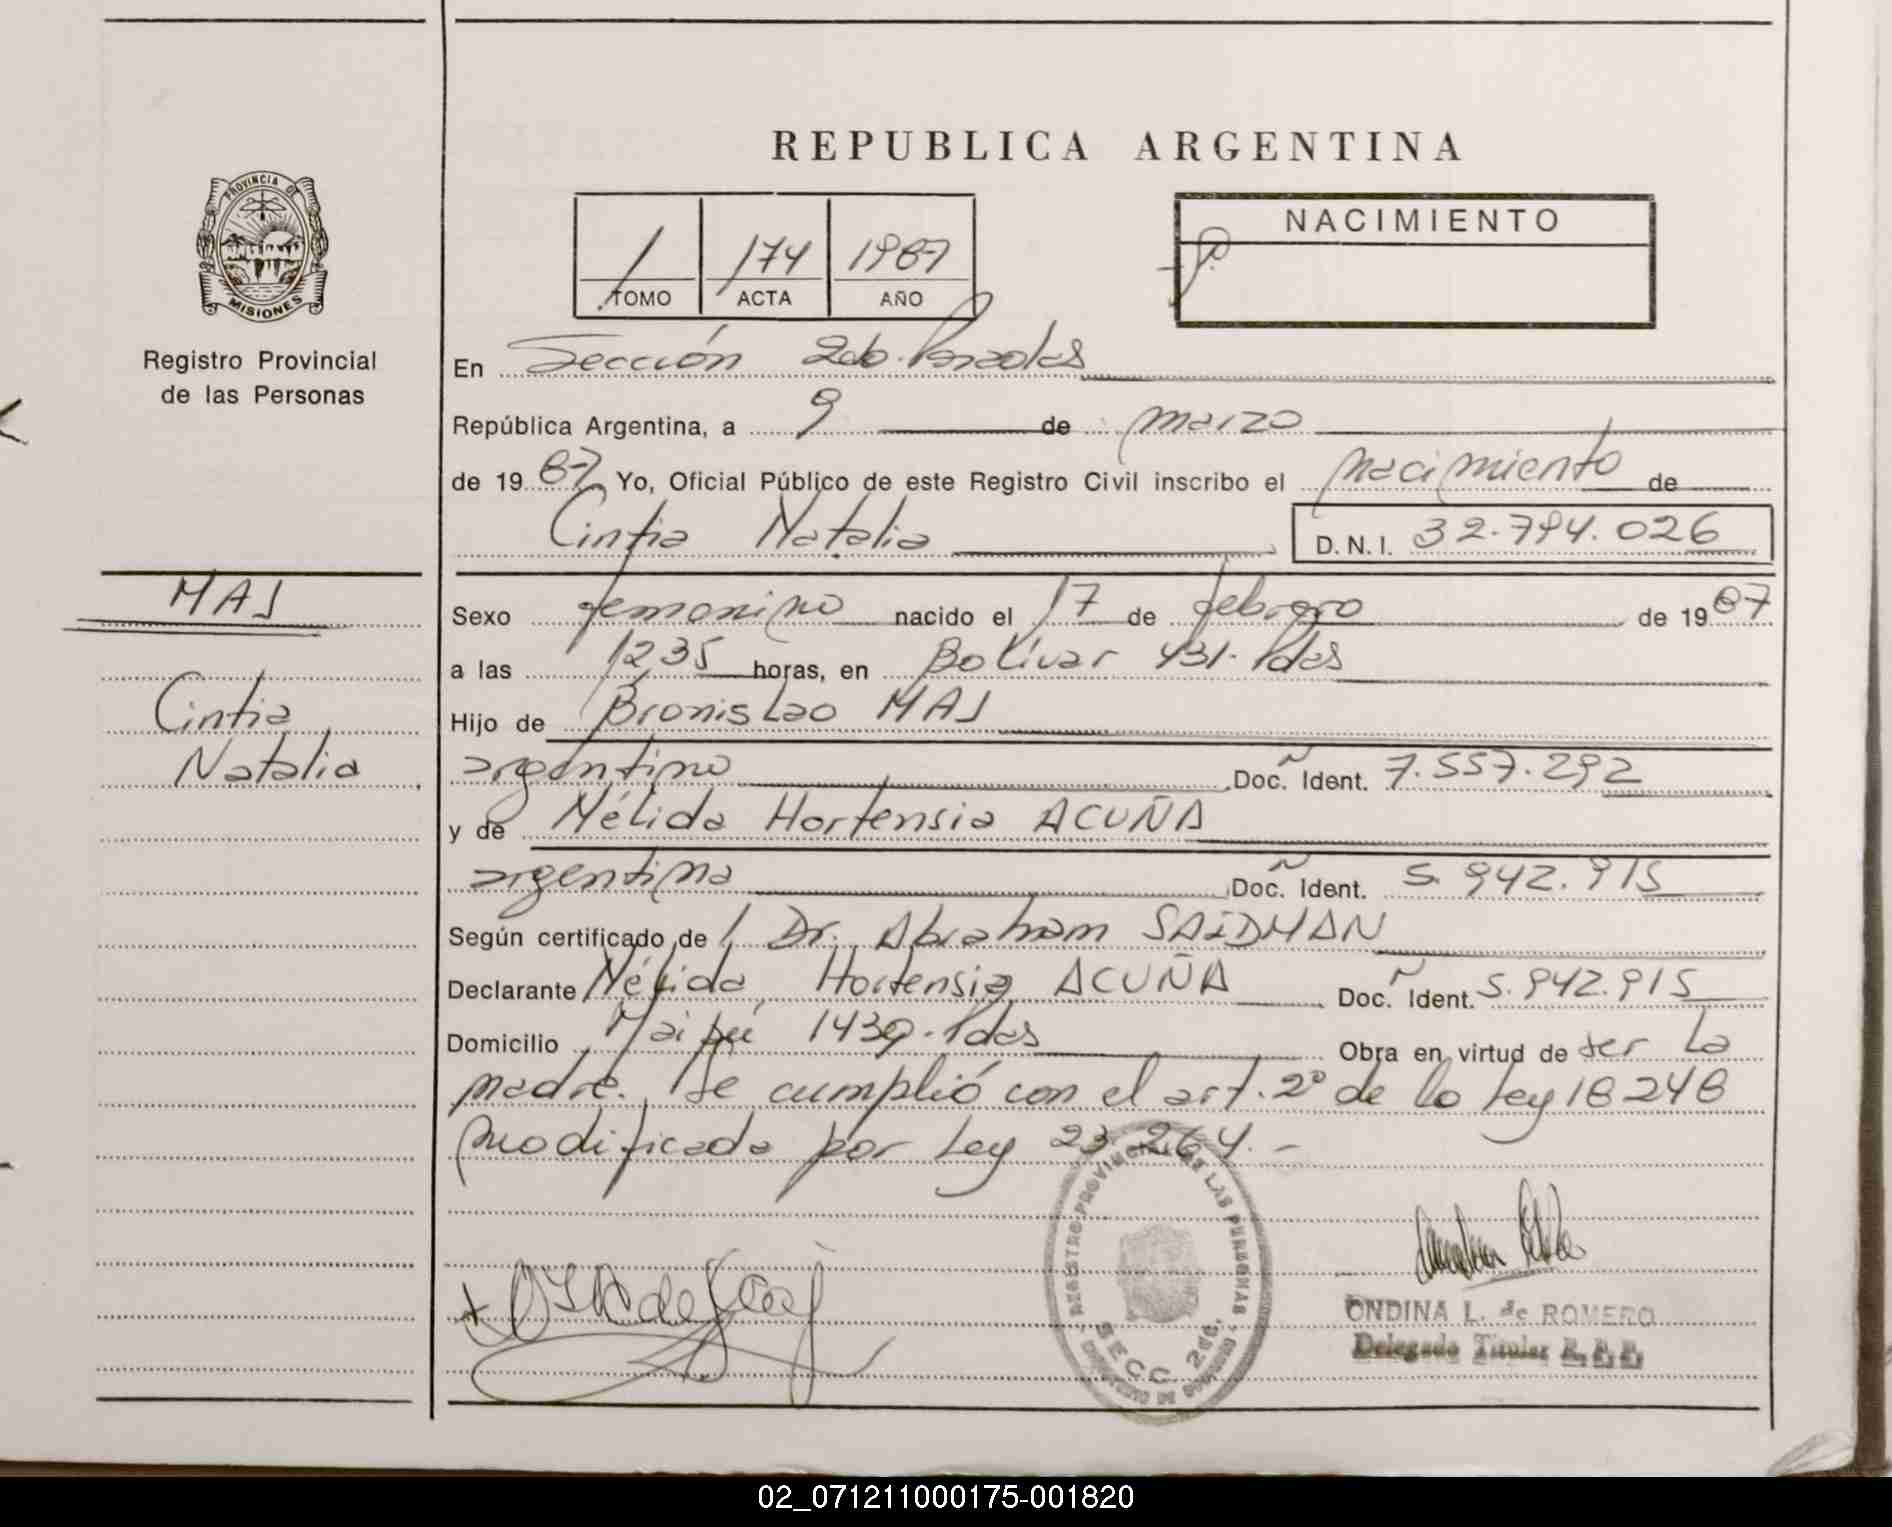 REPUBLICA ARGENTINA
PROVINCIA DE
MISIONES
Registro Provincial
de las Personas
1 174 1987
TOMO ACTA AÑO
NACIMIENTO
En Sección 2da. Posadas
República Argentina, a 9 de marzo
de 1987 Yo, Oficial Público de este Registro Civil inscribo el nacimiento de
Cintia Natalia D.N.I. 32.794.026
MAJ
Cintia
Natalia
Sexo femenino nacido el 17 de febrero de 1987
a las 1235 horas, en Bolívar 431- Pdas
Hijo de Bronislao MAJ
argentino Doc. Ident. 7.557.292
y de Nélida Hortensia ACUÑA
argentina Doc. Ident. 5.942.915
Según certificado de Dr. Abraham SAIDMAN
Declarante Nélida Hortensia ACUÑA Doc. Ident. 5.942.915
Domicilio Maipú 1439- Pdas Obra en virtud de ser la
madre. Se cumplió con el art. 2º de la Ley 18248
modificada por Ley 23.264.-
REGISTRO PROVINCIAL DE LAS PERSONAS
SECC. 2da.
ONDINA L. de ROMERO
Delegado Titular R.P.P.
02_071211000175-001820